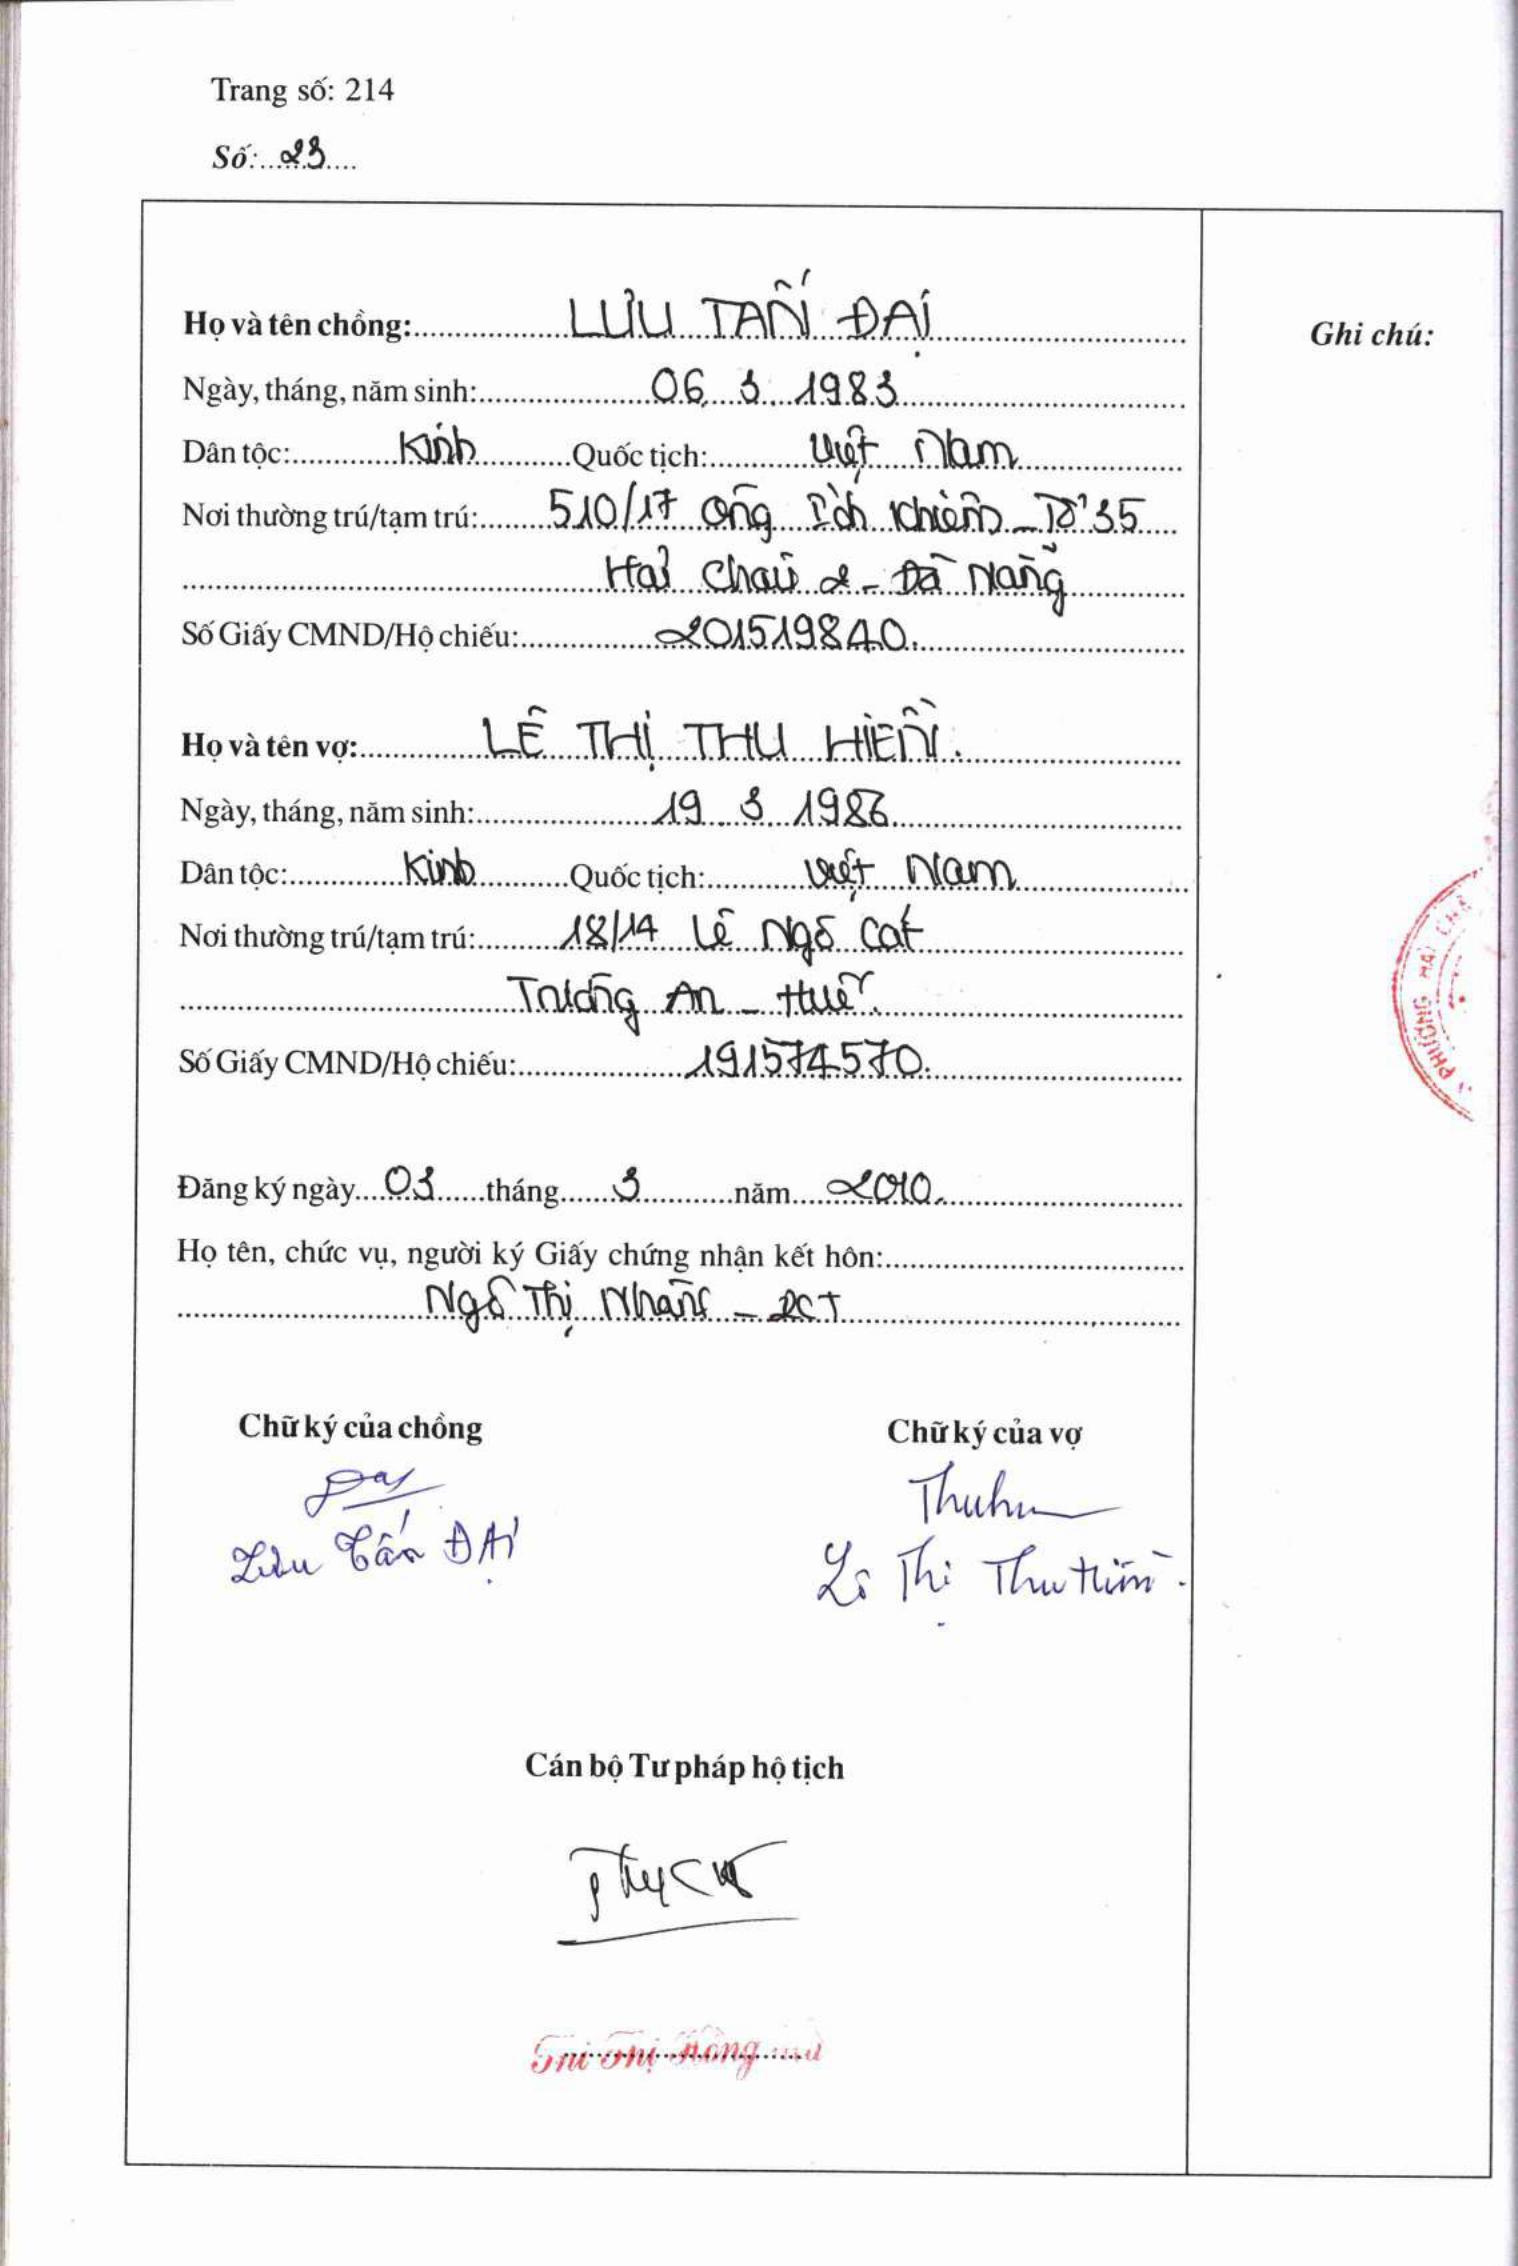 Trang số: 214
Số: 23
Họ và tên chồng: LƯU TẤN ĐẠI
Ghi chú:
Ngày, tháng, năm sinh: 06 3 1983
Dân tộc: Kinh Quốc tịch: Việt Nam
Nơi thường trú/tạm trú: 510/17 Ông Ích Khiêm - Tổ 35
Hải Châu 2 - Đà Nẵng
Số Giấy CMND/Hộ chiếu: 201519840.
Họ và tên vợ: LÊ THỊ THU HIỀN.
Ngày, tháng, năm sinh: 19 3 1986
Dân tộc: Kinh Quốc tịch: Việt Nam
Nơi thường trú/tạm trú: 18/14 Lê Ngô Cát
Trường An - Huế.
Số Giấy CMND/Hộ chiếu: 191574570.
PHƯỜNG HẢI
Đăng ký ngày 03 tháng 3 năm 2010.
Họ tên, chức vụ, người ký Giấy chứng nhận kết hôn:
Ngô Thị - PCT
Chữ ký của chồng Chữ ký của vợ
Lưu Tấn ĐẠI Lê Thị Thu Hiền
Cán bộ Tư pháp hộ tịch
Thị Hồng